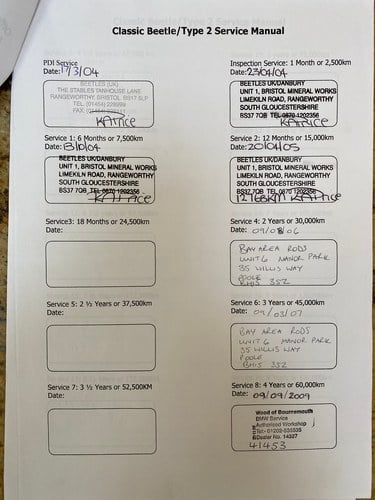 Classic Beetle/Type 2 Service Manual
PDI Service
Date: 17/3/04
BEETLES (UK)
THE STABLES TANHOUSE LANE
RANGEWORTHY, BRISTOL BS17 5LP
TEL: (01454) 228999
FAX: (01454)
KATrice
Inspection Service: 1 Month or 2,500km
Date: 23/04/04
BEETLES UK/DANBURY
UNIT 1, BRISTOL MINERAL WORKS
LIMEKILN ROAD, RANGEWORTHY
SOUTH GLOUCESTERSHIRE
BS37 7QB TEL 0870 1202356
KATrice
Service 1: 6 Months or 7,500km
Date:
BEETLES UK/DANBURY
UNIT 1, BRISTOL MINERAL WORKS
LIMEKILN ROAD, RANGEWORTHY
SOUTH GLOUCESTERSHIRE
BS37 7QB TEL 0870 1202356
KATrice
Service 2: 12 Months or 15,000km
Date: 20/04/05
BEETLES UK/DANBURY
UNIT 1, BRISTOL MINERAL WORKS
LIMEKILN ROAD, RANGEWORTHY
SOUTH GLOUCESTERSHIRE
BS37 7QB TEL 0870 1202356
12768KM KATrice
Service3: 18 Months or 24,500km
Date:
Service 4: 2 Years or 30,000km
Date: 09/08/06
BAY AREA RODS
UNIT 6 MANOR PARK
35 WILLIS WAY
POOLE
BH15 3SZ
Service 5: 2 ½ Years or 37,500km
Date:
Service 6: 3 Years or 45,000km
Date: 09/03/07
BAY AREA RODS
UNIT 6 MANOR PARK
35 WILLIS WAY
POOLE
BH15 3SZ
Service 7: 3 ½ Years or 52,500KM
Date:
Service 8: 4 Years or 60,000km
Date: 09/09/2009
Wood of Bournemouth
BMW Service
Authorised Workshop
Tel:- 01202-535535
Dealer No. 14327
41453